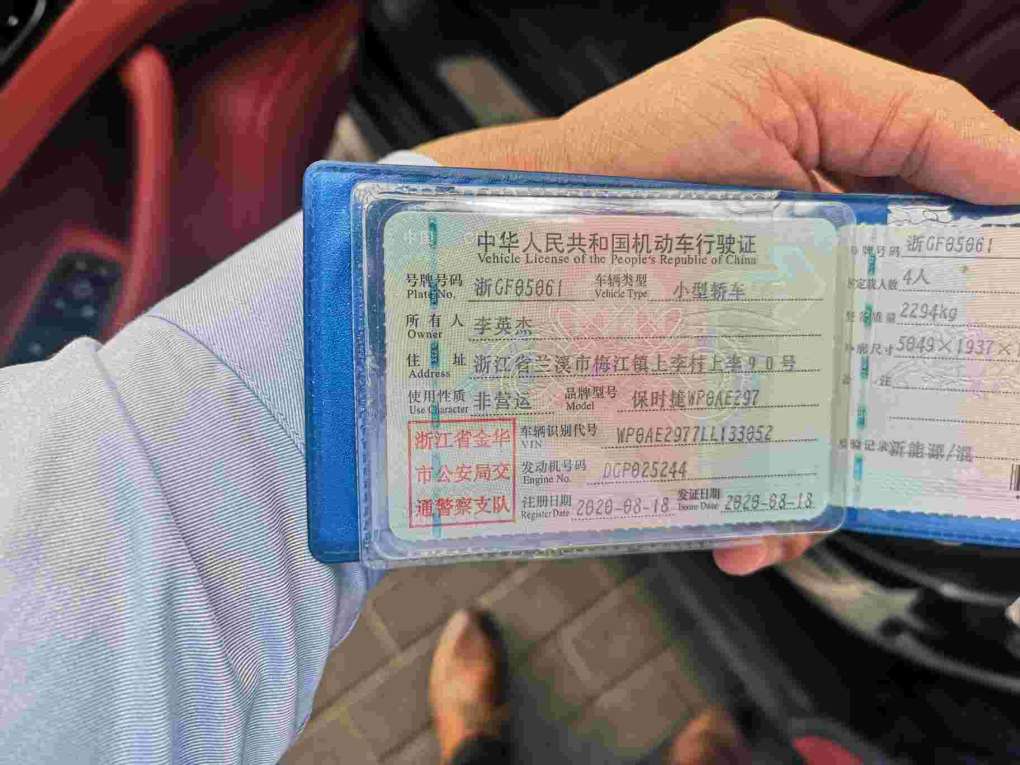 中华人民共和国机动车行驶证
Vehicle License of the People's Republic of China
号牌号码 浙GF05061 车辆类型 小型轿车
Plate No. Vehicle Type
所有人 李英杰
Owner
住址 浙江省兰溪市梅江镇上李村上李90号
Address
使用性质 非营运 品牌型号 保时捷WP0AE297
Use Character Model
浙江省金华
市公安局交
通警察支队
车辆识别代号 WP0AE2977LL133052
VIN
发动机号码 DGP025244
Engine No.
注册日期 2020-08-18 发证日期 2020-08-18
Register Date Issue Date
号牌号码 浙GF05061
核定载人数 4人
2294kg
外廓尺寸 5049×1937×1
备注
检验记录 新能源/混